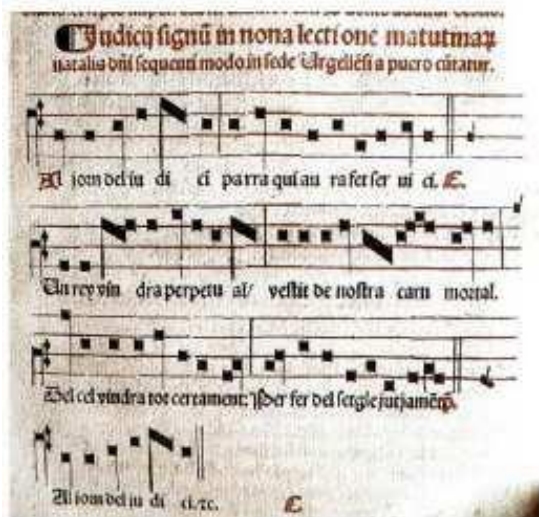 Judicij signũ in nona lectione matutinaꝝ
natalis dñi sequenti modo in sede Urgelleñ a puero cãtatur.
Al iorn del iu di ci parra qui au ra fet ser ui ci.
Un rey vin dra perpetu al/ vestit de nostra carn mortal.
Del cel vindra tot certament: Per fer del setgle jutjamẽt.
Al iorn del iu di ci. ꝛc.